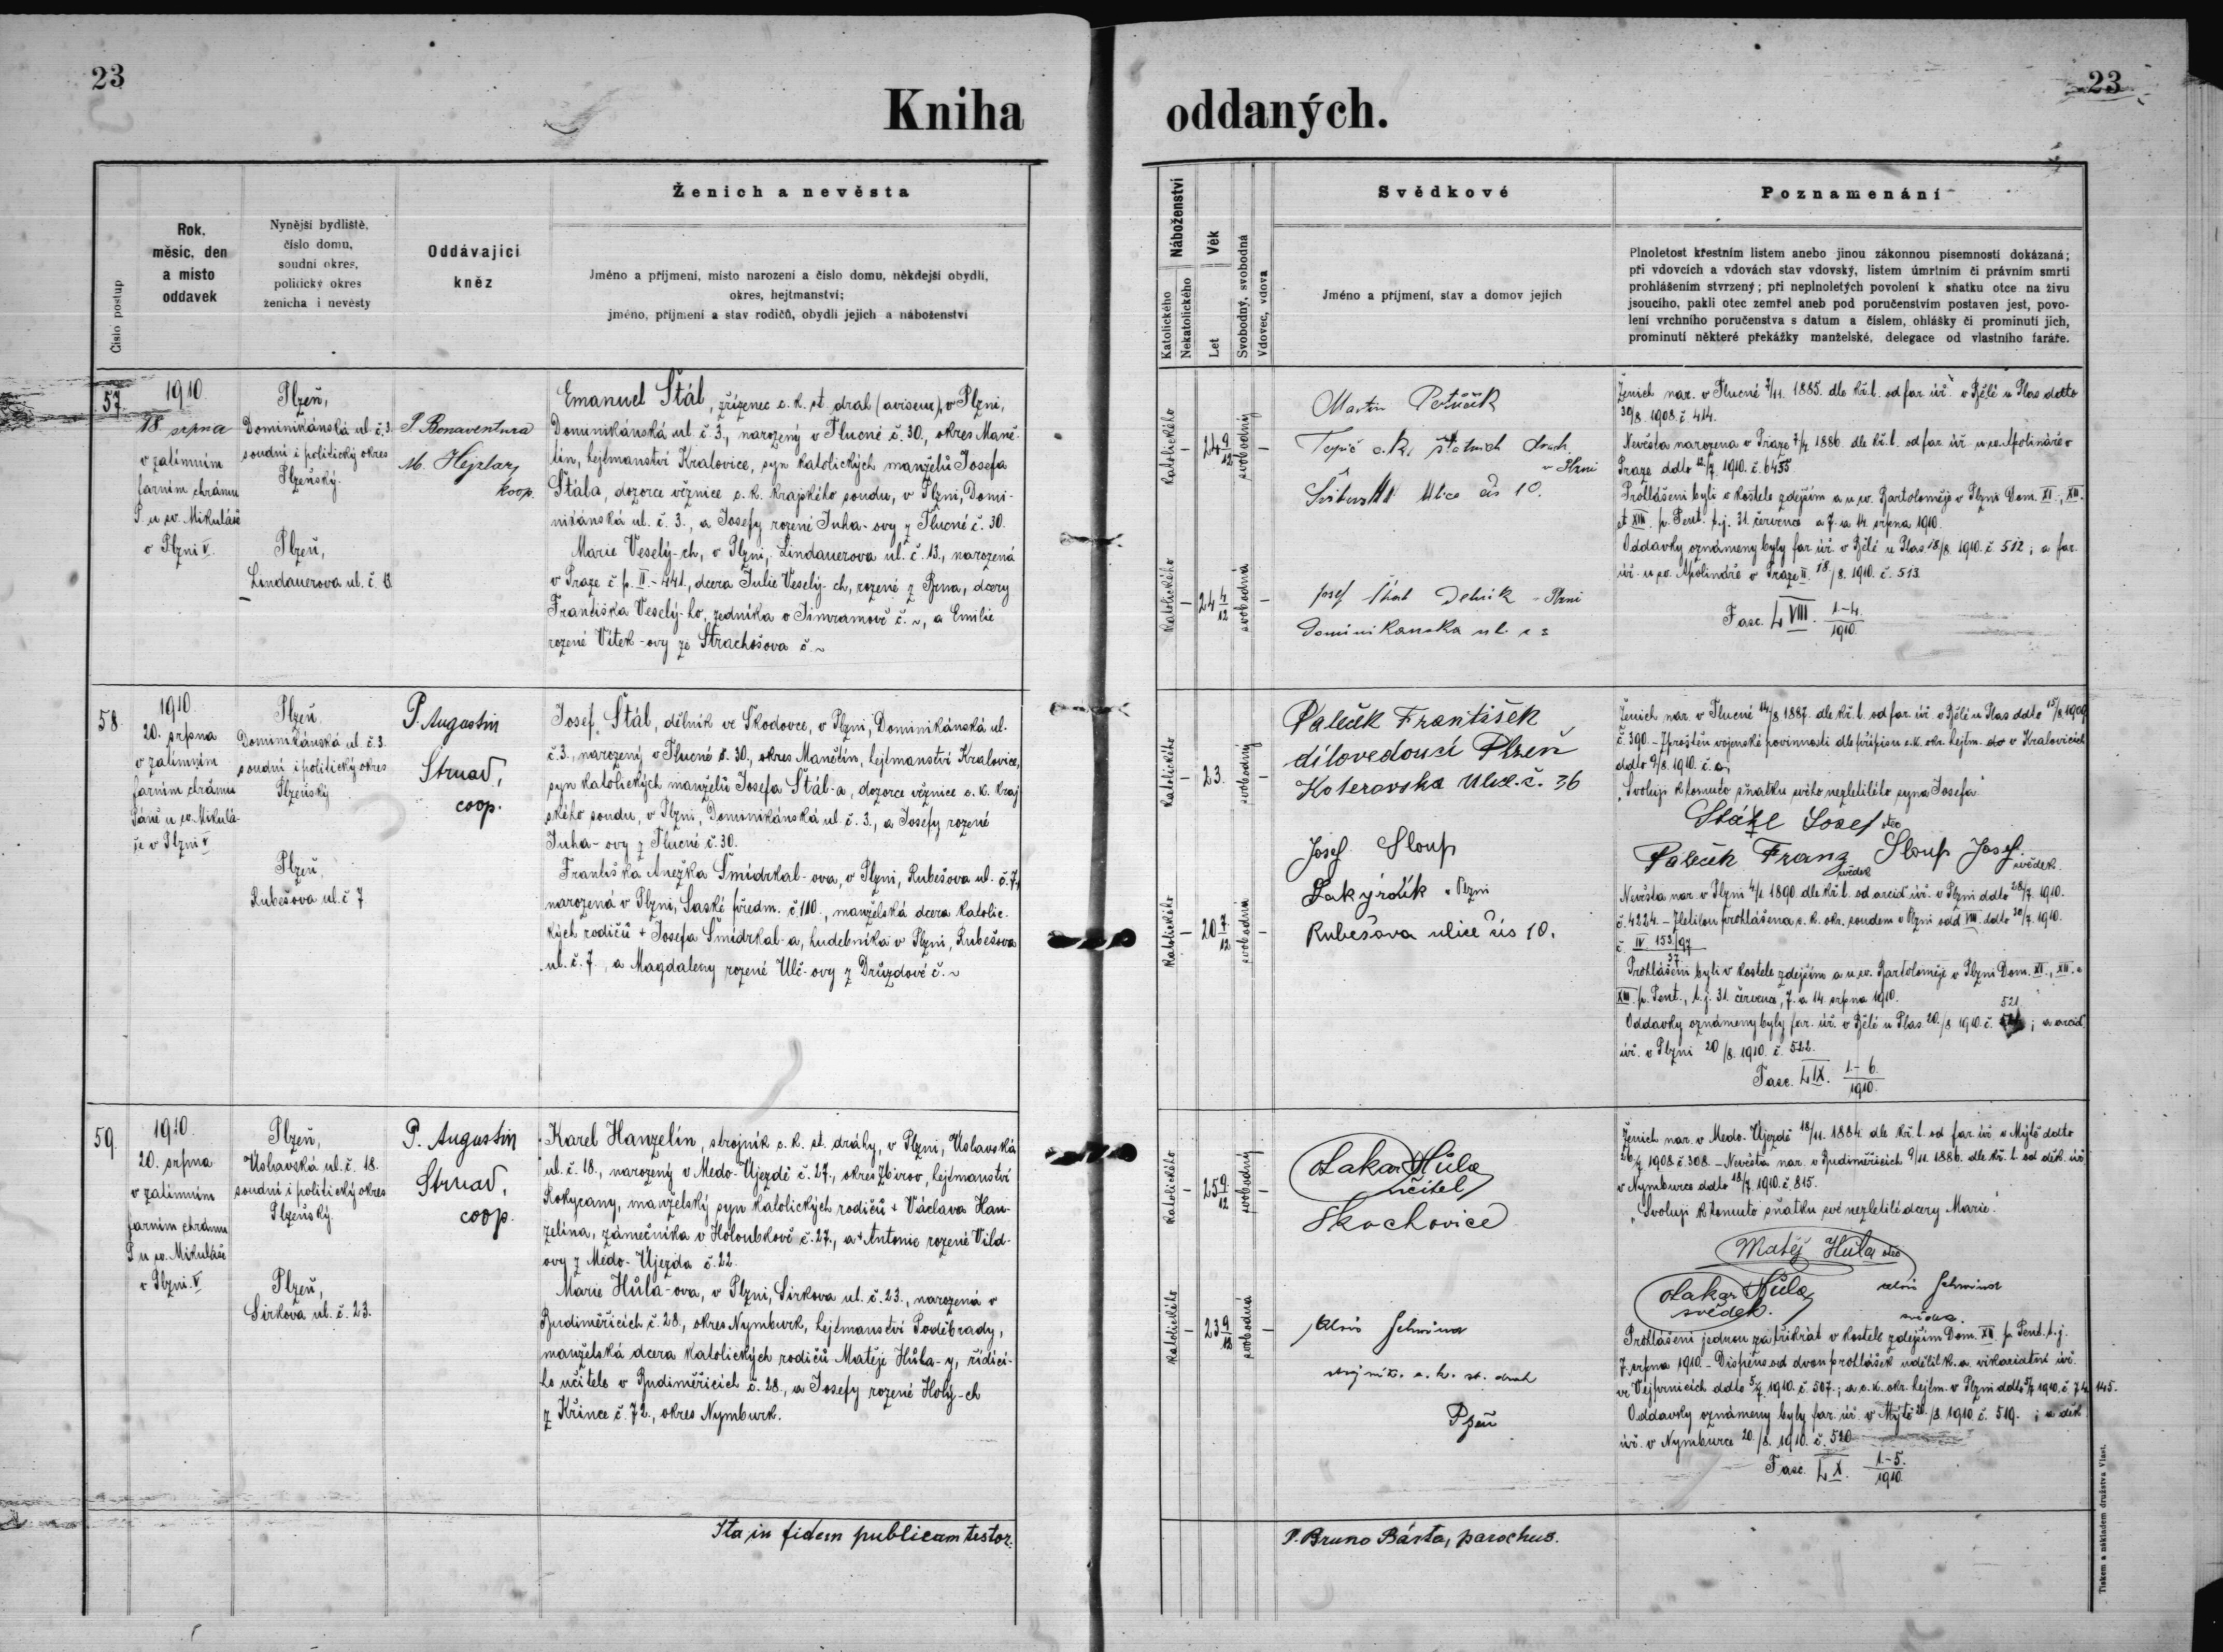 23
Kniha oddaných.
23
Číslo postup
Rok,
měsíc, den
a místo
oddavek
Nynější bydliště,
číslo domu,
soudní okres,
politický okres
ženicha i nevěsty
Oddávající
kněz
Ženich a nevěsta
Jméno a příjmení, místo narození a číslo domu, někdejší obydlí,
okres, hejtmanství;
jméno, příjmení a stav rodičů, obydlí jejich a náboženství
Náboženství
Katolického
Nekatolického
Věk
Let
Svobodný, svobodná
Vdovec, vdova
Svědkové
Jméno a příjmení, stav a domov jejich
Poznamenání
Plnoletost křestním listem anebo jinou zákonnou písemností dokázaná;
při vdovcích a vdovách stav vdovský, listem úmrtním či právním smrti
prohlášením stvrzený; při neplnoletých povolení k sňatku otce na živu
jsoucího, pakli otec zemřel aneb pod poručenstvím postaven jest, povo-
lení vrchního poručenstva s datum a číslem, ohlášky či prominutí jich,
prominutí některé překážky manželské, delegace od vlastního faráře.
57.
1910
18 srpna
v zatímním
farním chrámu
P. u sv. Mikuláše
v Plzni V.
Plzeň,
Dominikánská ul. č. 3.
soudní i politický okres
Plzeňský.
Plzeň,
Lindauerova ul. č. 13
P. Bonaventura
M. Hejzlar,
koop.
Emanuel Štál, zřízenec c. k. st. drah (aviseur), v Plzni,
Dominikánská ul. č. 3., narozený v Tlucné č. 30., okres Maně-
tín, hejtmanství Kralovice, syn katolických manželů Josefa
Štála, dozorce věznice c. k. krajského soudu, v Plzni, Domi-
nikánská ul. č. 3., a Josefy rozené Juha-ovy z Tlucné č. 30.
Marie Veselý-ch, v Plzni, Lindauerova ul. č. 13., narozená
v Praze č. p. II.-441., dcera Julie Veselý-ch, rozené z Brna, dcery
Františka Veselý-ho, zedníka v Jimramově č. ~, a Emilie
rozené Vítek-ovy ze Strachošova č. ~
Katolického
24 9/12
svobodný
Katolického
24 4/12
svobodná
Martin Petříček
Topič c. k. státních drah
v Plzni
Ulice čís 10.
Josef Štál Dělník v Plzni
Dominikanska ul. č 3
Ženich nar. v Tlucné 7/11. 1885. dle kř. l. od far. úř. v Bělé u Plas ddto
30/8. 1908. č. 414.
Nevěsta narozena v Praze 7/4 1886. dle kř. l. od far. úř. u sv. Apolináře v
Praze ddto 12/7. 1910. č. 6455
Prohlášeni byli v kostele zdejším a u sv. Bartoloměje v Plzni Dom. XI., XII.
et XIII. p. Pent. t. j. 31. července a 7. a 14. srpna 1910.
Oddavky oznámeny byly far. úř. v Bělé u Plas 18/8. 1910. č. 512; a far.
úř. u sv. Apolináře v Praze II. 18/8. 1910. č. 513.
Fasc. LVIII. 1-4./1910.
58.
1910.
20. srpna
v zatímním
farním chrámu
Páně u sv. Mikulá-
še v Plzni V
Plzeň.
Dominikánská ul. č. 3.
soudní i politický okres
Plzeňský
Plzeň,
Rubešova ul. č 7.
P. Augustin
Strnad,
coop.
Josef Štál, dělník ve Škodovce, v Plzni, Dominikánská ul.
č. 3., narozený v Tlucné č. 30., okres Manětín, hejtmanství Kralovice,
syn katolických manželů Josefa Štál-a, dozorce věznice c. k. kraj-
ského soudu, v Plzni, Dominikánská ul. č. 3., a Josefy rozené
Juha-ovy z Tlucné č. 30.
Františka Anežka Šmídrkal-ova, v Plzni, Rubešova ul. č. 7,
narozená v Plzni, Saské předm. č. 110., manželská dcera katolic-
kých rodičů + Josefa Šmídrkal-a, hudebníka v Plzni, Rubešova
ul. č. 7., a Magdaleny rozené Ulč-ovy z Druzdové č. ~
Katolického
23.
svobodný
Katolického
20 7/12
svobodná
Paleček František
dílovedoucí Plzeň
Koterovska Ulice č. 36
Josef Sloup
Lakýrník v Plzni
Rubešova ulice čis 10.
Ženich nar. v Tlucné 14/8 1887. dle kř. l. od far. úř. v Bělé u Plas ddto 15/8. 1909
č. 390. - Zproštěn vojenské povinnosti dle přípisu c. k. okr. hejtm. v Kralovicích
ddto 9/8. 1910.
"Svoluji k tomuto sňatku svého nezletilého syna Josefa."
Stáhl Josef otec
Paleček Franz svědek Sloup Josef svědek.
Nevěsta nar. v Plzni 4/1 1890. dle kř. l. od arcid. úř. v Plzni ddto 28/7. 1910.
č. 4224. - Zletilou prohlášena c. k. okr. soudem v Plzni odd VIII. ddto 30/7. 1910.
č. IV 153/97
37
Prohlášeni byli v kostele zdejším a u sv. Bartoloměje v Plzni Dom. XI., XII. a
XIII. p. Pent., t. j. 31. července, 7. a 14. srpna 1910.
Oddavky oznámeny byly far. úř. v Bělé u Plas 20./8. 1910. č. 521; a arcid.
úř. v Plzni 20/8. 1910. č. 522.
Fasc. LIX. 1-6./1910.
59.
1910.
20. srpna
v zatímním
farním chrámu
P. u sv. Mikuláše
v Plzni. V
Plzeň,
Úslavská ul. č. 18.
soudní i politický okres
Plzeňský.
Plzeň,
Sirkova ul. č. 23.
P. Augustin
Strnad,
coop.
Karel Hanzelín, strojník c. k. st. dráhy, v Plzni, Úslavská
ul. č. 18., narozený v Medo-Újezdě č. 27., okres Zbirov, hejtmanství
Rokycany, manželský syn katolických rodičů + Václava Han-
zelína, zámečníka v Holoubkově č. 27., a + Antonie rozené Vild-
ovy z Medo-Újezda č. 22.
Marie Hůla-ova, v Plzni, Sirkova ul. č. 23., narozená v
Budiměřicích č. 28., okres Nymburk, hejtmanství Poděbrady,
manželská dcera katolických rodičů Matěje Hůla-y, řídící-
ho učitele v Budiměřicích č. 28., a Josefy rozené Holý-ch
z Křince č. 72., okres Nymburk.
Katolického
25 9/12
svobodný
Katolického
23 9/12
svobodná
Otakar Hůla
učitel
Skochovice
Alois
strojník. c. k. st. drah
Plzeň
Ženich nar. v Medo-Újezdě 18/11. 1884. dle kř. l. od far. úř. v Mýtě ddto
26/7 1908. č. 308. - Nevěsta nar. v Budiměřicích 9/11. 1886. dle kř. l. od děk. úř
v Nymburce ddto 18/7. 1910. č. 815.
"Svoluji k tomuto sňatku své nezletilé dcery Marie."
Matěj Hůla otec
Otakar Hůla
svědek.
Alois
svědek.
Prohlášeni jednou za třikrát v kostele zdejším Dom. XII p. Pent. t. j.
7. srpna 1910. - Dispens od dvou prohlášek udělil k. a. vikariatní úř.
ve Vejprnicích ddto 5/7. 1910. č. 507.; a c. k. okr. hejtm. v Plzni ddto 5/7 1910. č. 74.145.
Oddavky oznámeny byly far. úř. v Mýtě 20./8. 1910. č. 519.; a děk.
úř. v Nymburce 20./8. 1910. č. 520
Fasc. LX. 1.-5./1910
Ita in fidem publicam testor:
P. Bruno Bárta, parochus.
Tiskem a nákladem družstva Vlast.